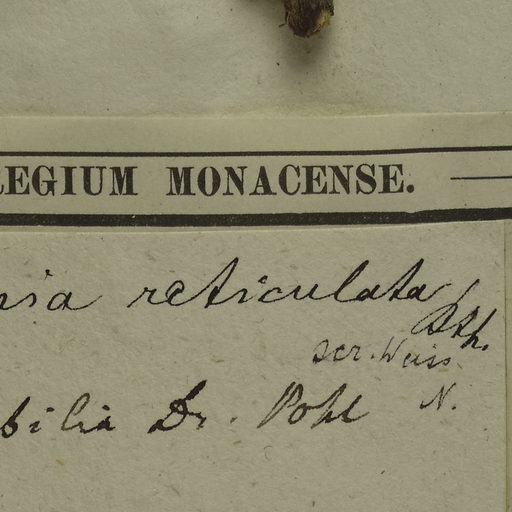 EGIUM MONACENSE.
nia reticulata
Bth.
scr. Weiss.
bilia Dr. Pohl N.